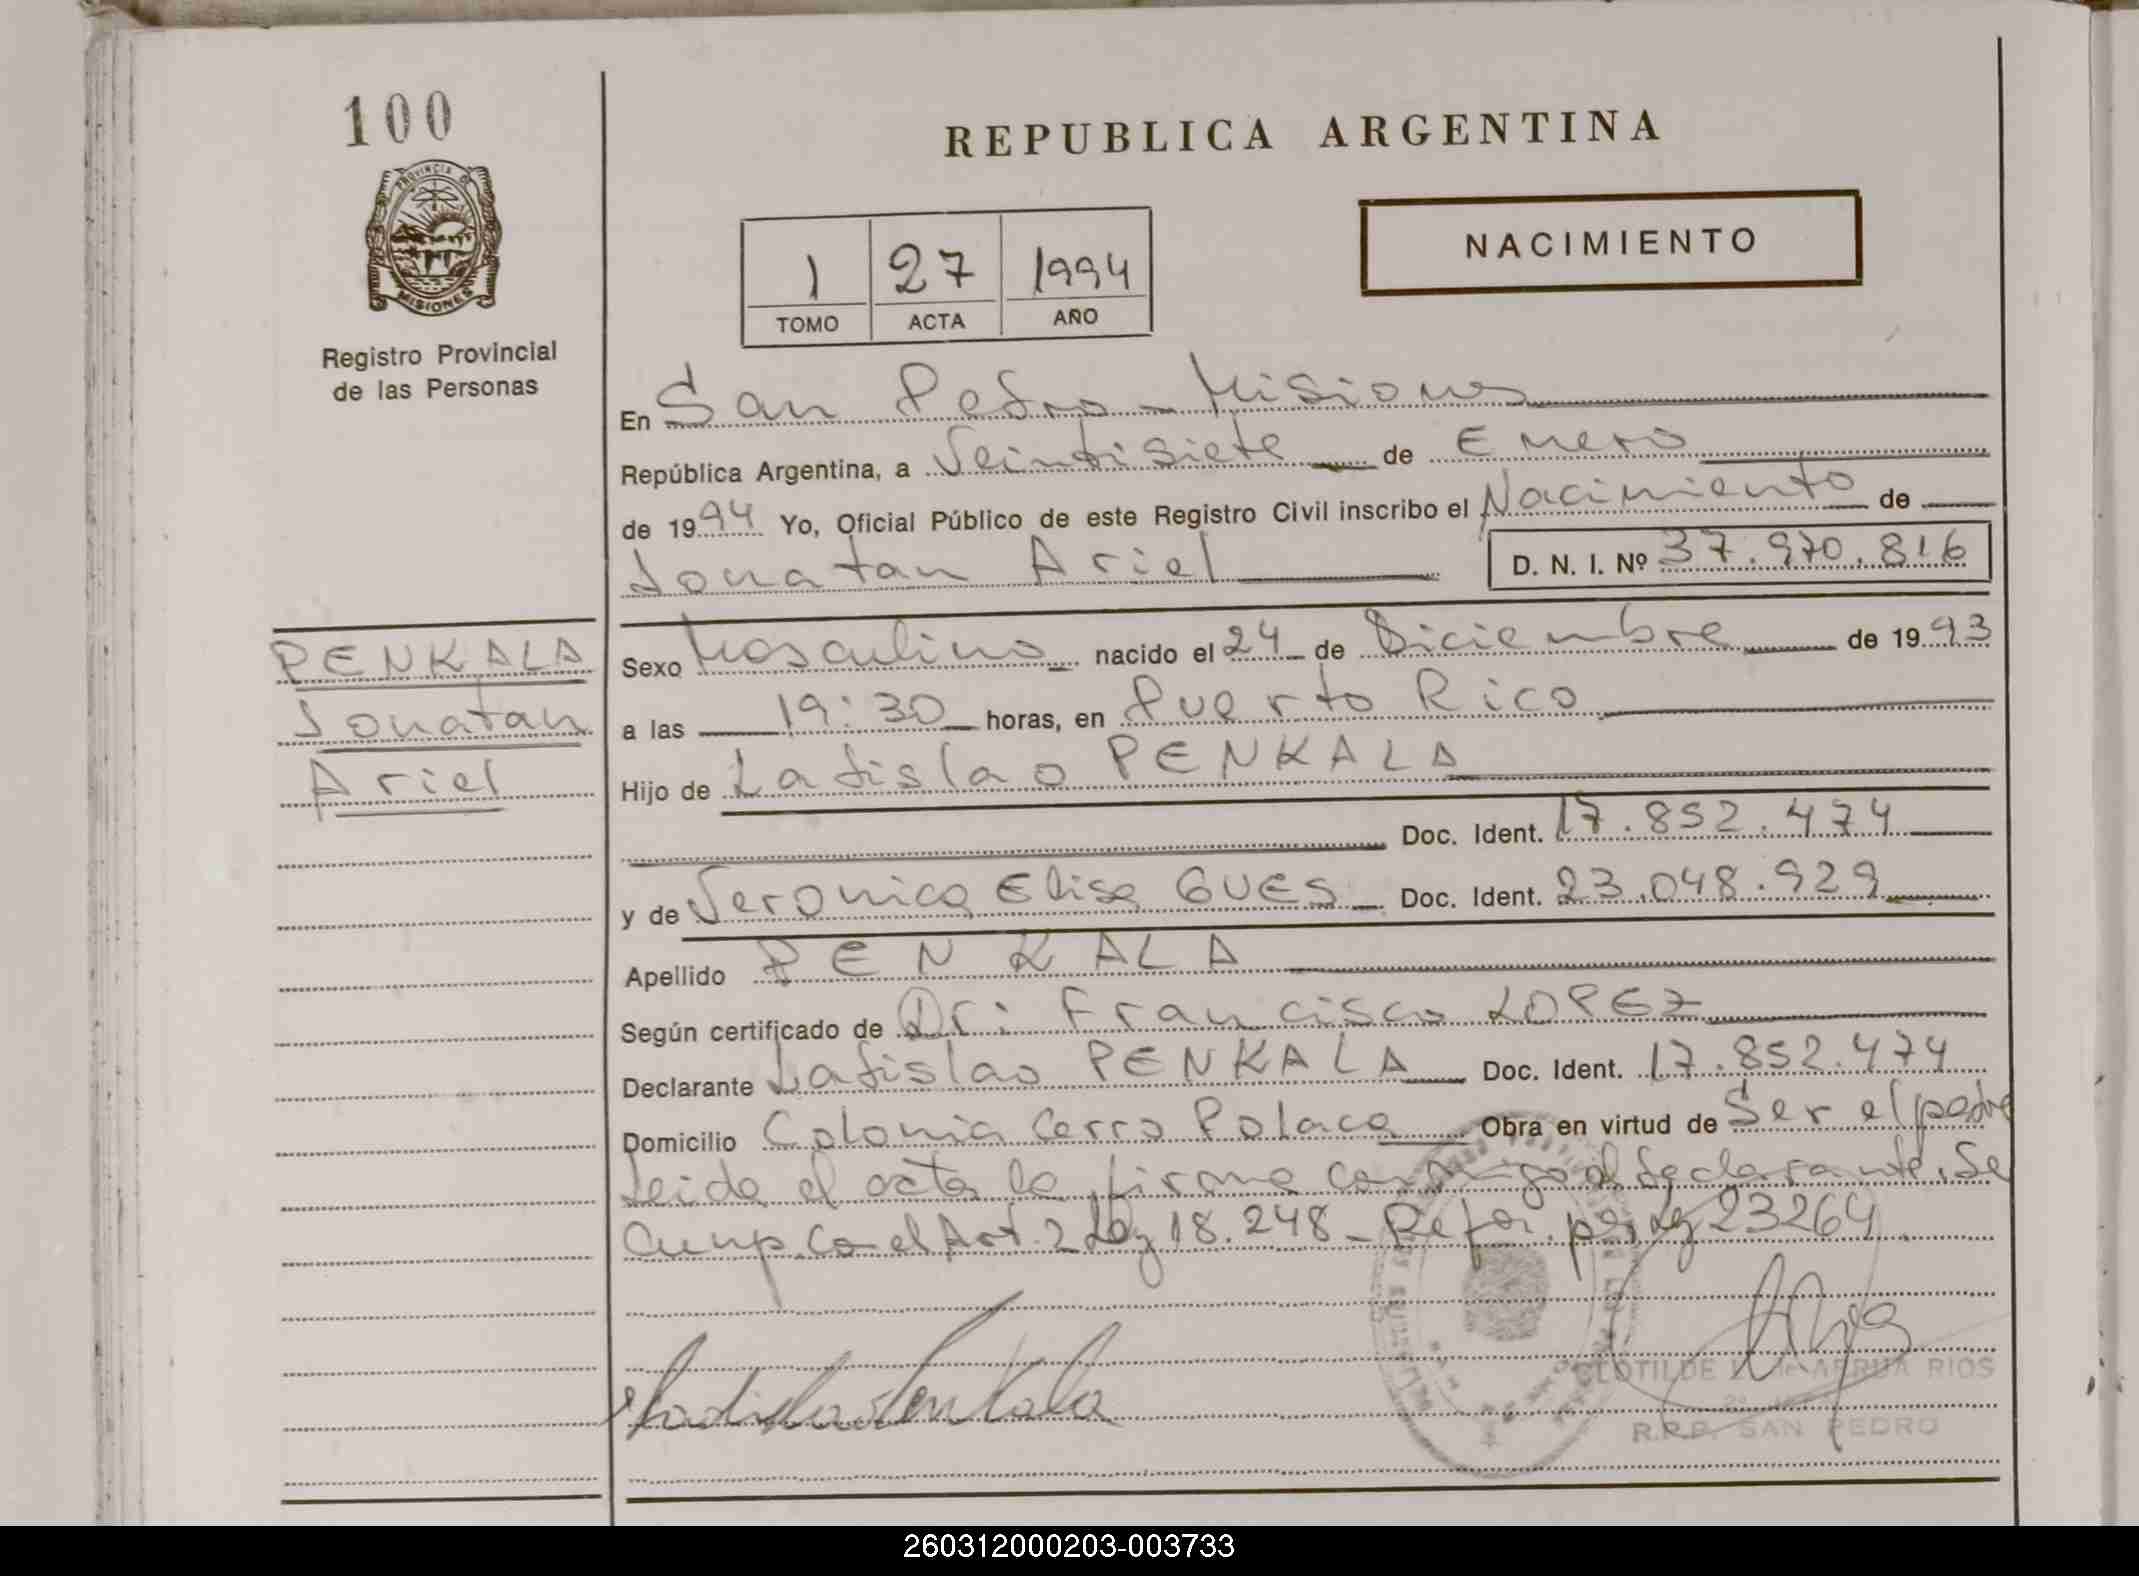 100
PROVINCIA DE
MISIONES
Registro Provincial
de las Personas
REPUBLICA ARGENTINA
NACIMIENTO
1 27 1994
TOMO ACTA AÑO
En San Pedro - Misiones
República Argentina, a Veintisiete de Enero
de 1994 Yo, Oficial Público de este Registro Civil inscribo el Nacimiento de
Jonatan Ariel D. N. I. Nº 37.970.816
PENKALA
Jonatan
Ariel
Sexo Masculino nacido el 24 de Diciembre de 1993
a las 19:30 horas, en Puerto Rico
Hijo de Ladislao PENKALA
Doc. Ident. 17.852.474
y de Veronica Elisa GUES Doc. Ident. 23.048.929
Apellido PENKALA
Según certificado de Dr: Francisco LOPEZ
Declarante Ladislao PENKALA Doc. Ident. 17.852.474
Domicilio Colonia Cerro Polaca Obra en virtud de Ser el padre
Leida el acta la firma conmigo el declarante. Se
Cump. con el Art. 2 Ley 18.248 - Refor. por Ley 23264.
Ladislao Penkala
CLOTILDE ARRUA RIOS
R.P.P. SAN PEDRO
260312000203-003733